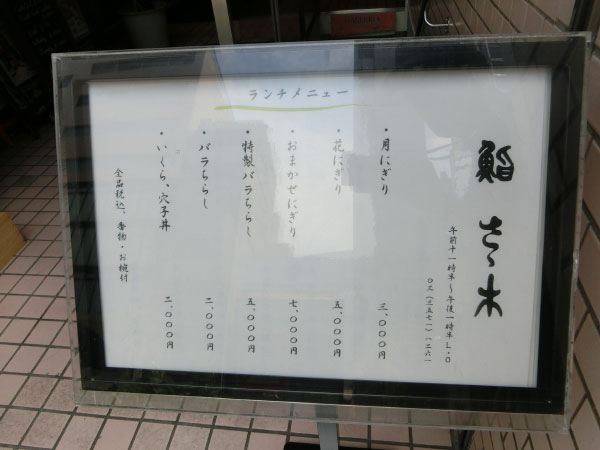 GALLERIA
ランチメニュー
鮨 さゝ木
午前十一時半〜午後一時半L.O
〇三(三五七一)一二六一
・月にぎり 三、〇〇〇円
・花にぎり 五、〇〇〇円
・おまかせにぎり 七、〇〇〇円
・特製バラちらし 五、〇〇〇円
・バラちらし 二、〇〇〇円
・いくら、穴子丼 二、〇〇〇円
全品税込、香物・お椀付